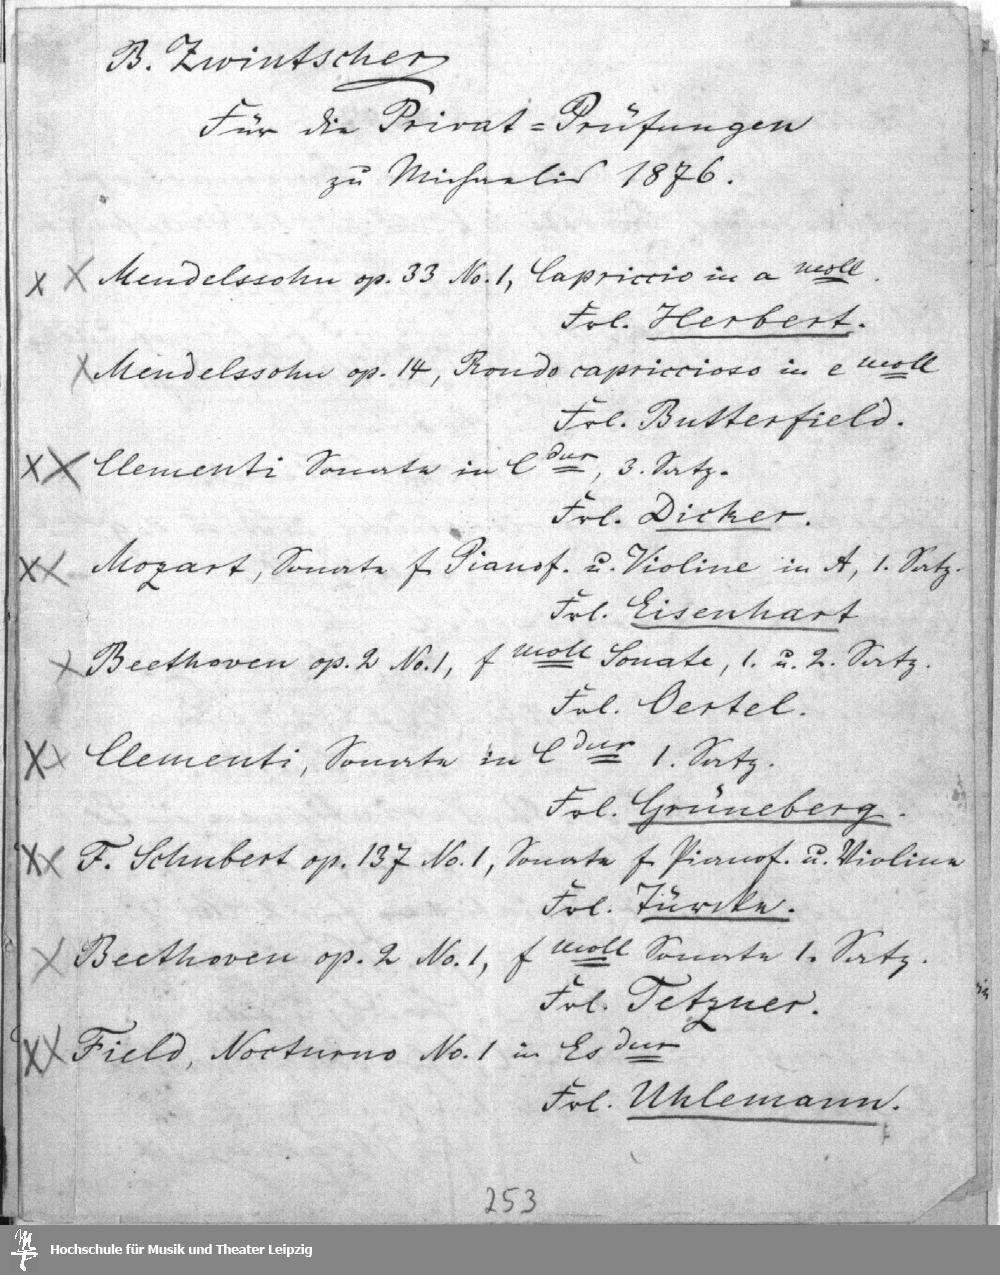 B. Zwintscher
Für die Privat=Prüfungen
zu Michaelis 1876.
x X Mendelssohn op. 33 No. 1, Capriccio in a moll.
Frl. Herbert.
X Mendelssohn op. 14, Rondo capriccioso in e moll
Frl. Butterfield.
x X Clementi Sonate in C dur, 3. Satz.
Frl. Dicker.
x X Mozart, Sonate f. Pianof. u. Violine in A, 1. Satz.
Frl. Eisenhart
X Beethoven op. 2 No. 1, f moll Sonate, 1. u. 2. Satz.
Frl. Oertel.
X x Clementi, Sonate in C dur 1. Satz.
Frl. Grüneberg.
X X F. Schubert op. 137 No. 1, Sonate f. Pianof. u. Violine
Frl. Türcke.
X Beethoven op. 2 No. 1, f moll Sonate 1. Satz.
Frl. Tetzner.
X X Field, Nocturno No. 1 in Es dur
Frl. Uhlemann.
253
Hochschule für Musik und Theater Leipzig